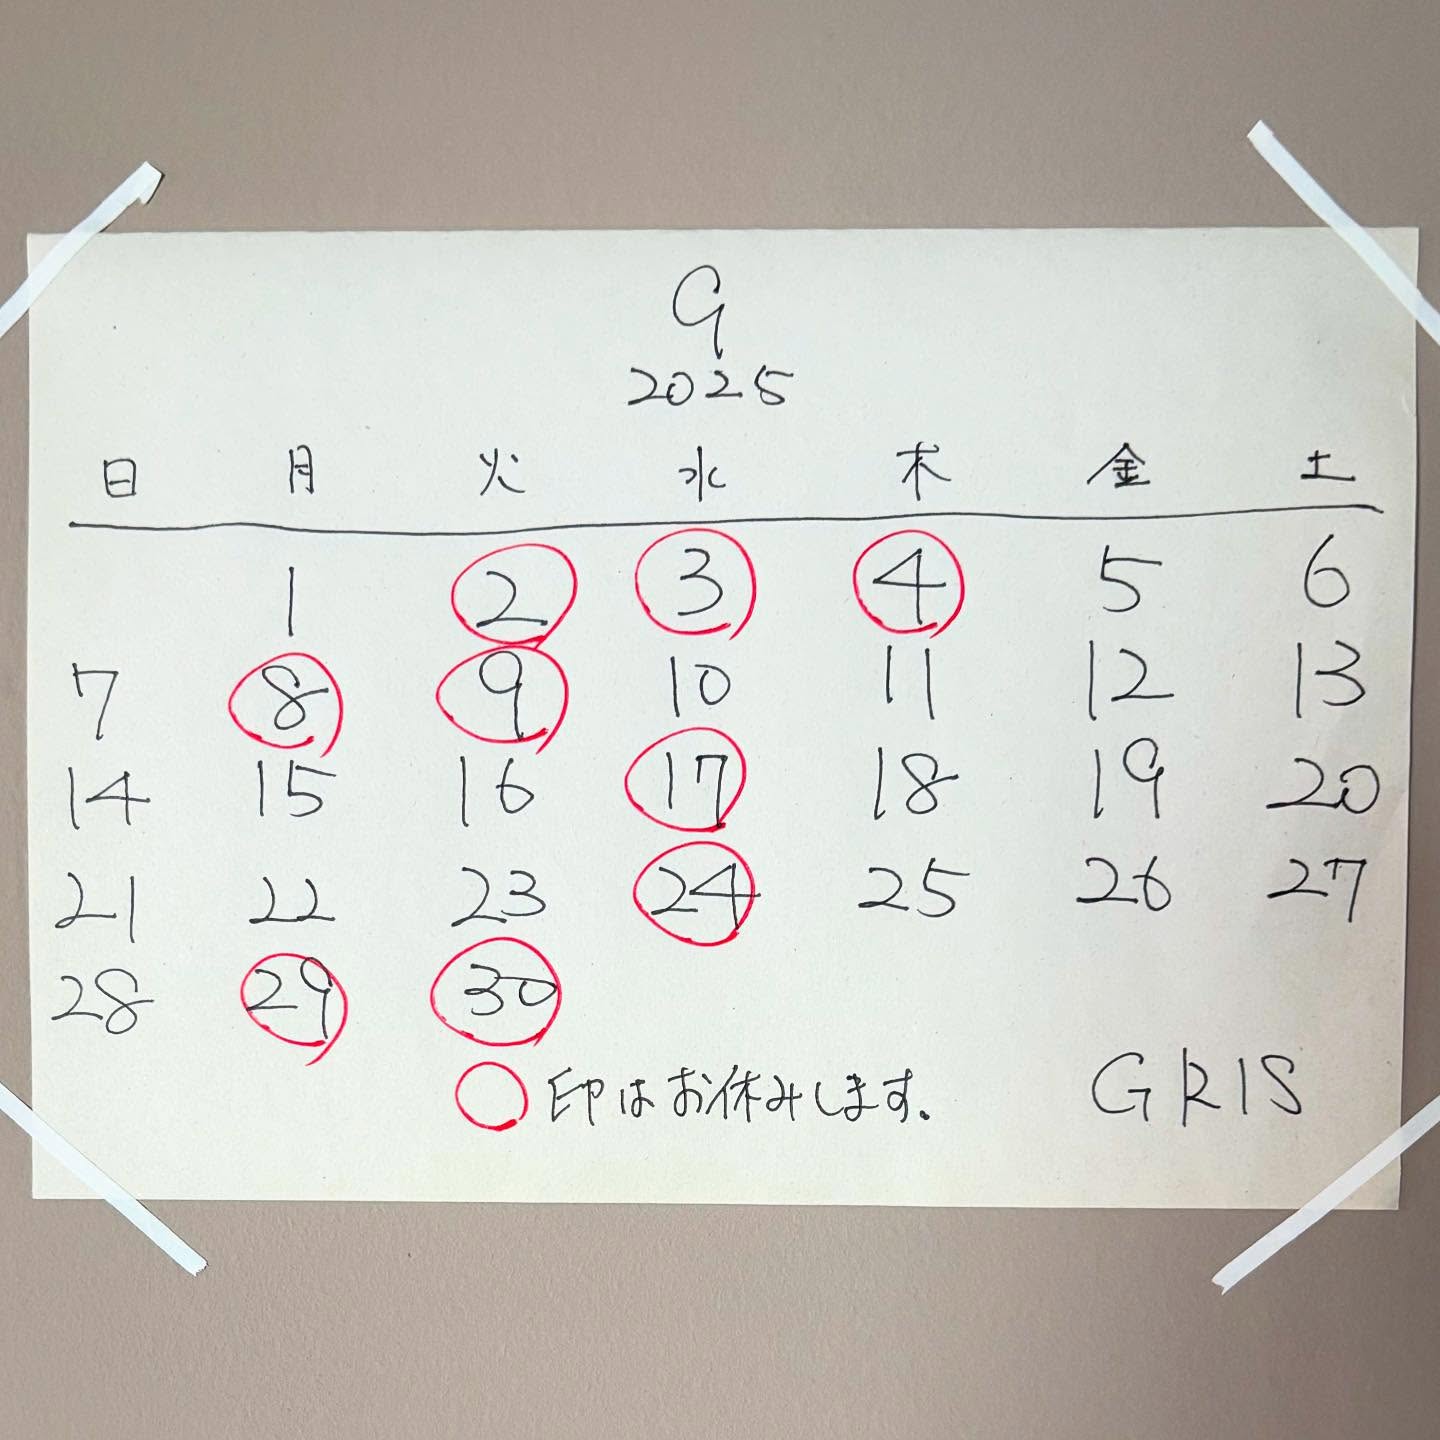 9
2025
日 月 火 水 木 金 土
1 2 3 4 5 6
7 8 9 10 11 12 13
14 15 16 17 18 19 20
21 22 23 24 25 26 27
28 29 30
印はお休みします。
GRIS